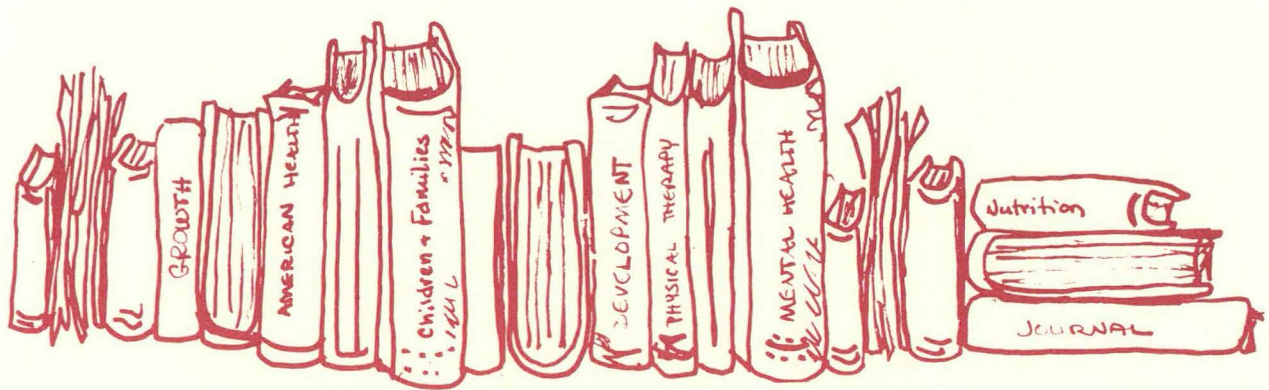 GROWTH
AMERICAN HEALTH
Children + Families
DEVELOPMENT
PHYSICAL THERAPY
MENTAL HEALTH
Nutrition
JOURNAL